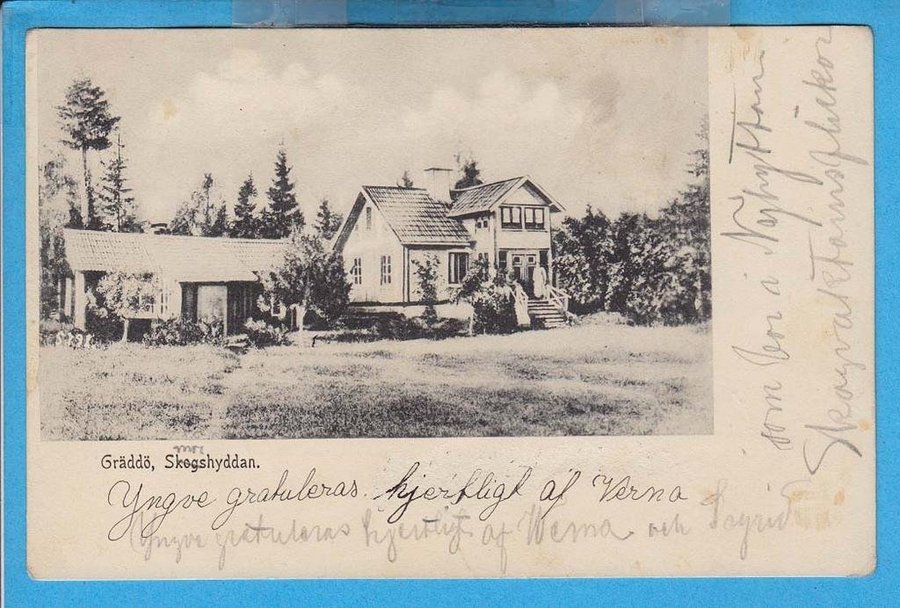 norr
Gräddö, Skogshyddan.
Yngve gratuleras hjertligt af Verna
Yngve gratuleras hjertligt af Werna och Sigrid
som bor i Nyhyttan
Skogvaktarns flickor